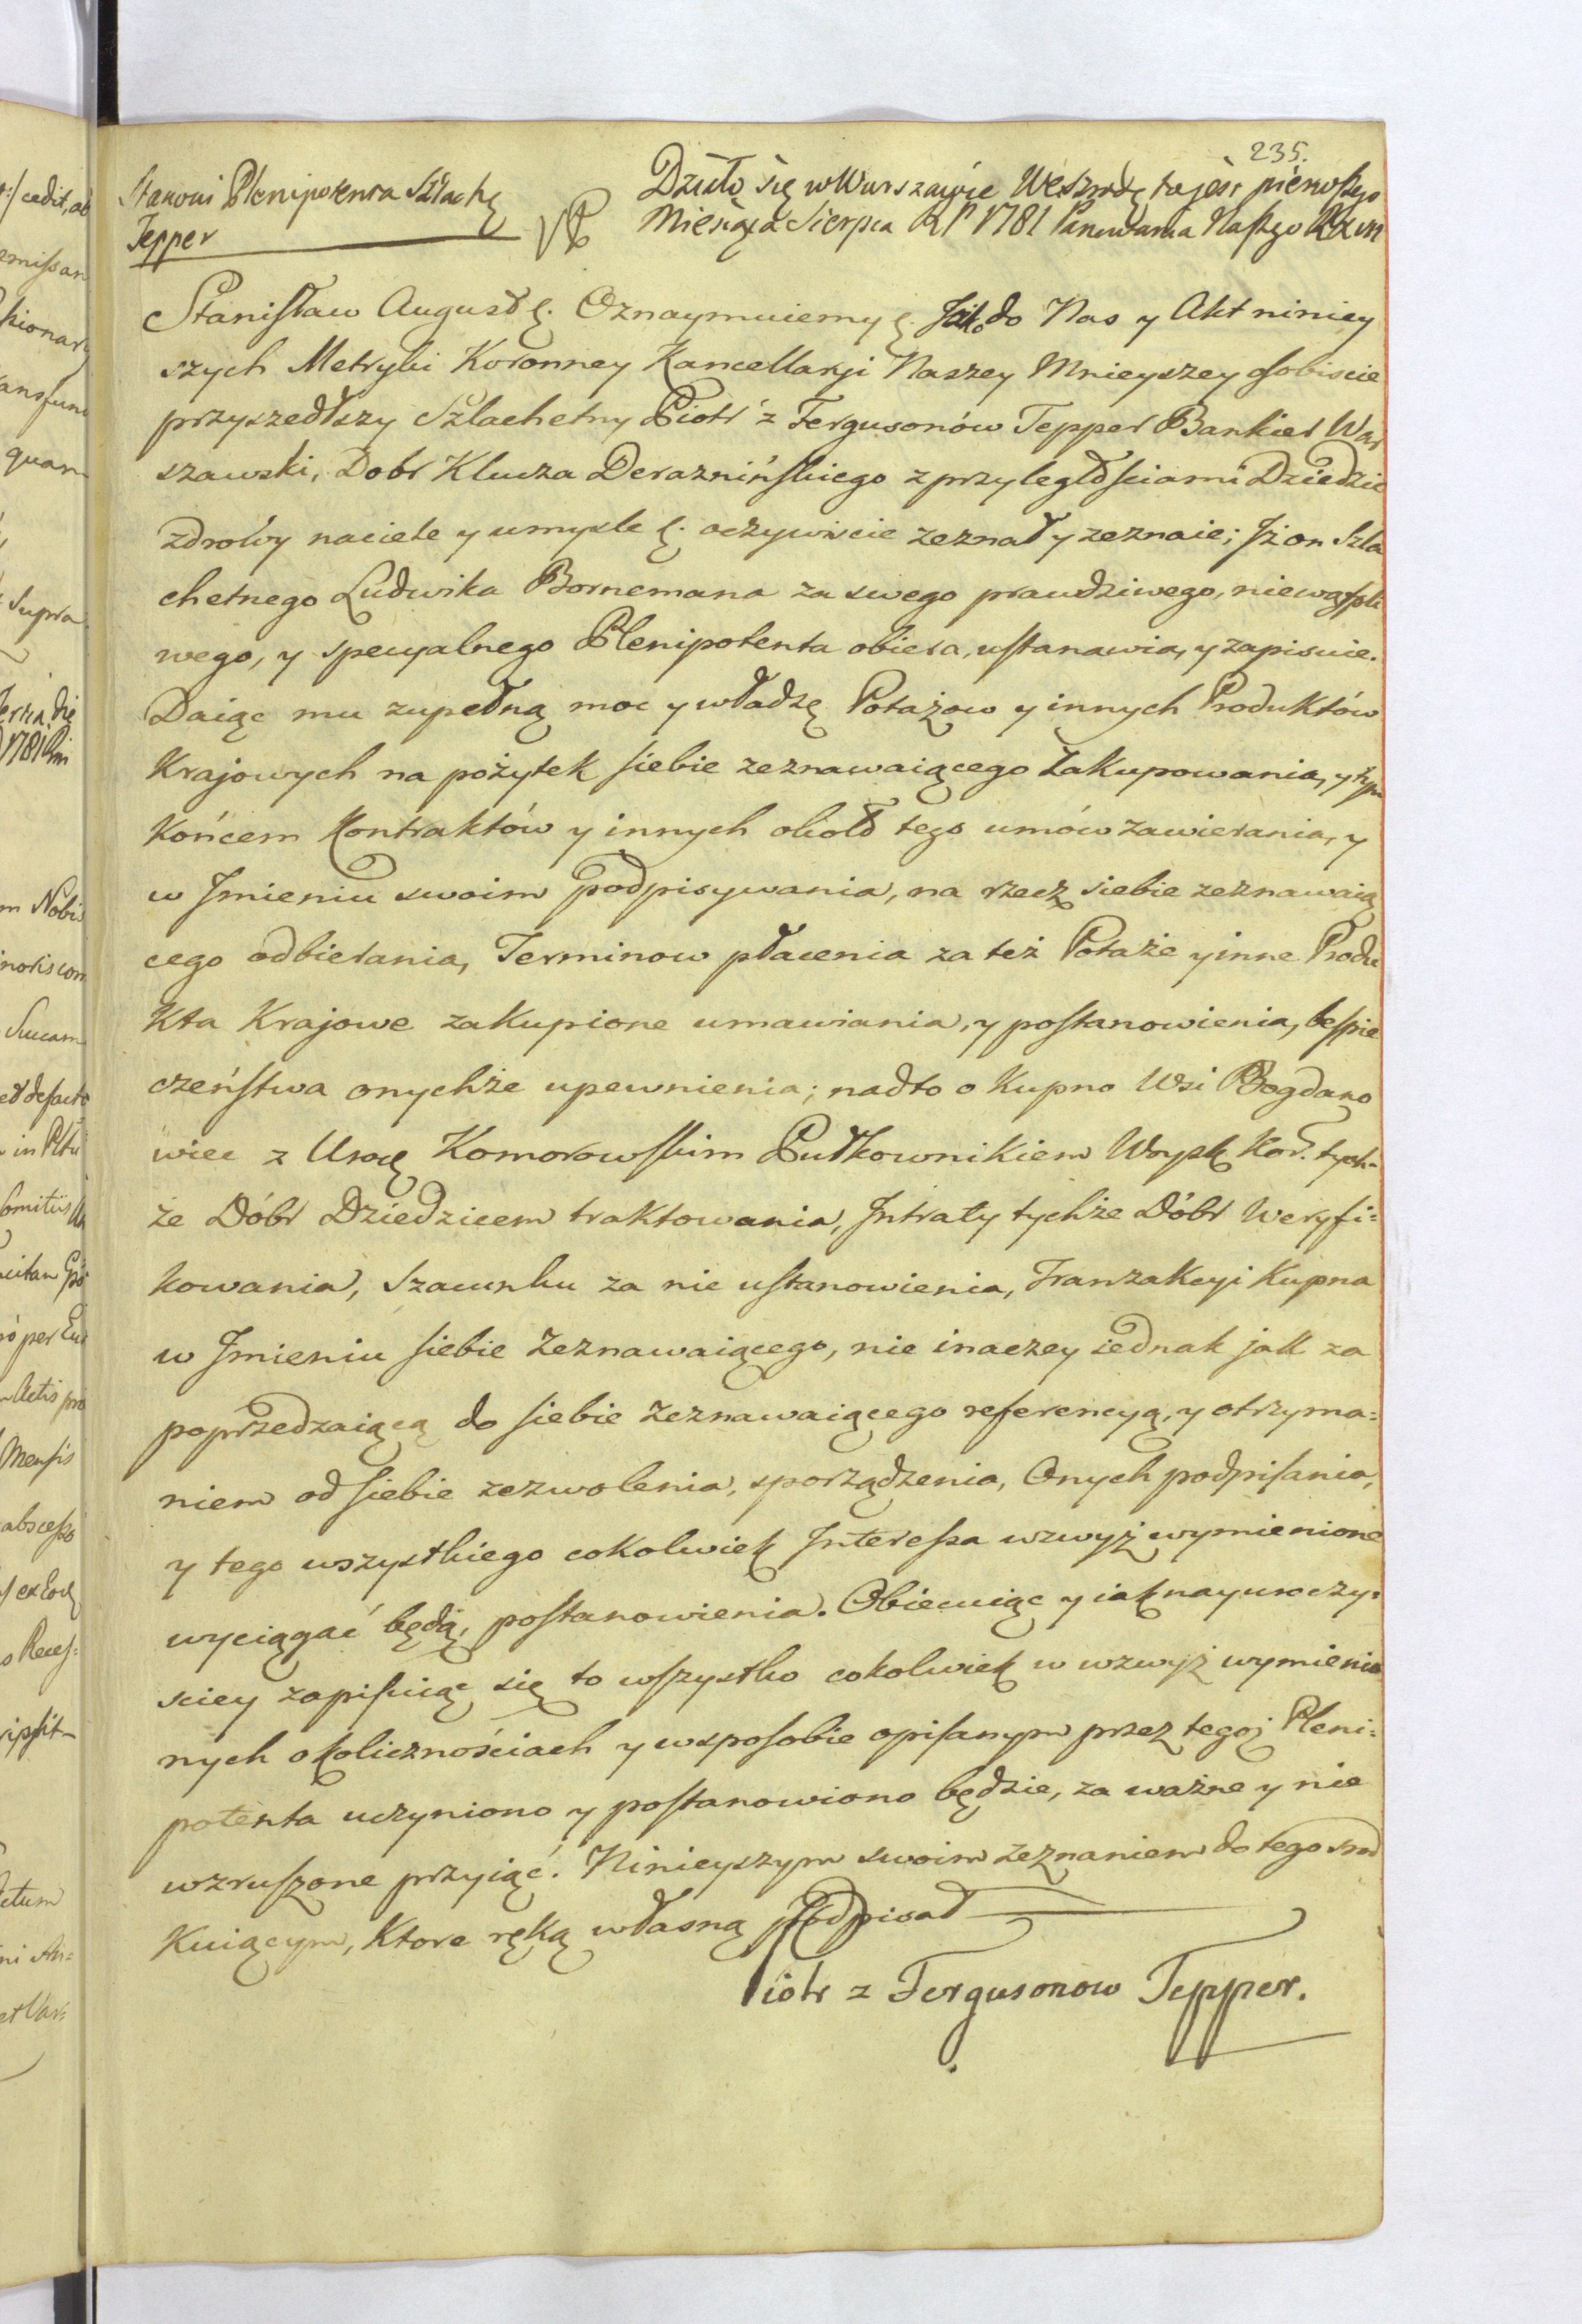 235.
Stanowi Plenipotenta Szlachę
Tepper
Działo się w Warszawie We Szrodę to jest pierwszego
Miesiąca Sierpca R P 1781 Panowania Naszego
Stanisław August ę. Oznaymuiemy ę. Iż do Nas y Akt niniey
szych Metryki Koronney Kancellaryi Naszey Mnieyszey osobiscie
przyszedłszy Szlachetny Piotr z Fergusonów Tepper Bankier War
szawski, Dobr Klucza Deraznińskiego z przyległościami Dziedzic
zdrowy naciele y umysle ę. oczywiscie zeznał y zeznaie; Iż on Szla
chetnego Ludwika Bornemana za swego prawdziwego, niewątpli
wego, y specyalnego Plenipotenta obiera, ustanawia, y zapisuie.
Daiąc mu zupełną moc y władzę Potażow y innych Produktów
Krajowych na pożytek siebie zeznawaiącego Zakupowania, y tym
końcem Kontraktów y innych około tego umów zawierania, y
w Imieniu swoim podpisywania, na rzecz siebie zeznawaią
cego odbierania, Terminow płacenia za też Potaże y inne Produ
kta Krajowe zakupione umawiania, y postanowienia, bespie
czeństwa onychże upewnienia; nadto o Kupno Wsi Bogdano
wiec z Urodę Komorowskim Pułkownikiem Woysk Kor. tych-
że Dóbr Dziedzicem traktowania, Intraty tychże Dóbr Weryfi=
kowania, Szacunku za nie ustanowienia, Tranzakcyi Kupna
w Imieniu siebie Zeznawaiącego, nie inaczey iednak jak za
poprzedzaiącą do siebie Zeznawaiącego referencyą, y otrzyma=
niem od siebie zezwolenia, sporządzenia, Onych podpisania,
y tego wszystkiego cokolwiek Interessa wzwyż wymienione
wyciągać będą, postanowienia. Obiecuiąc y iak nayuroczy=
sciey zapisuiąc się to wszystko cokolwiek w wzwyż wymienio
nych okolicznościach y w sposobie opisanym przez tegoż Pleni=
potenta uczyniono y postanowiono będzie, za ważne y nie
wzruszone przyiąć. Ninieyszym swoim zeznaniem do tego srod
kuiącym, Ktore ręką własną podpisał
Piotr z Fergusonow Tepper.